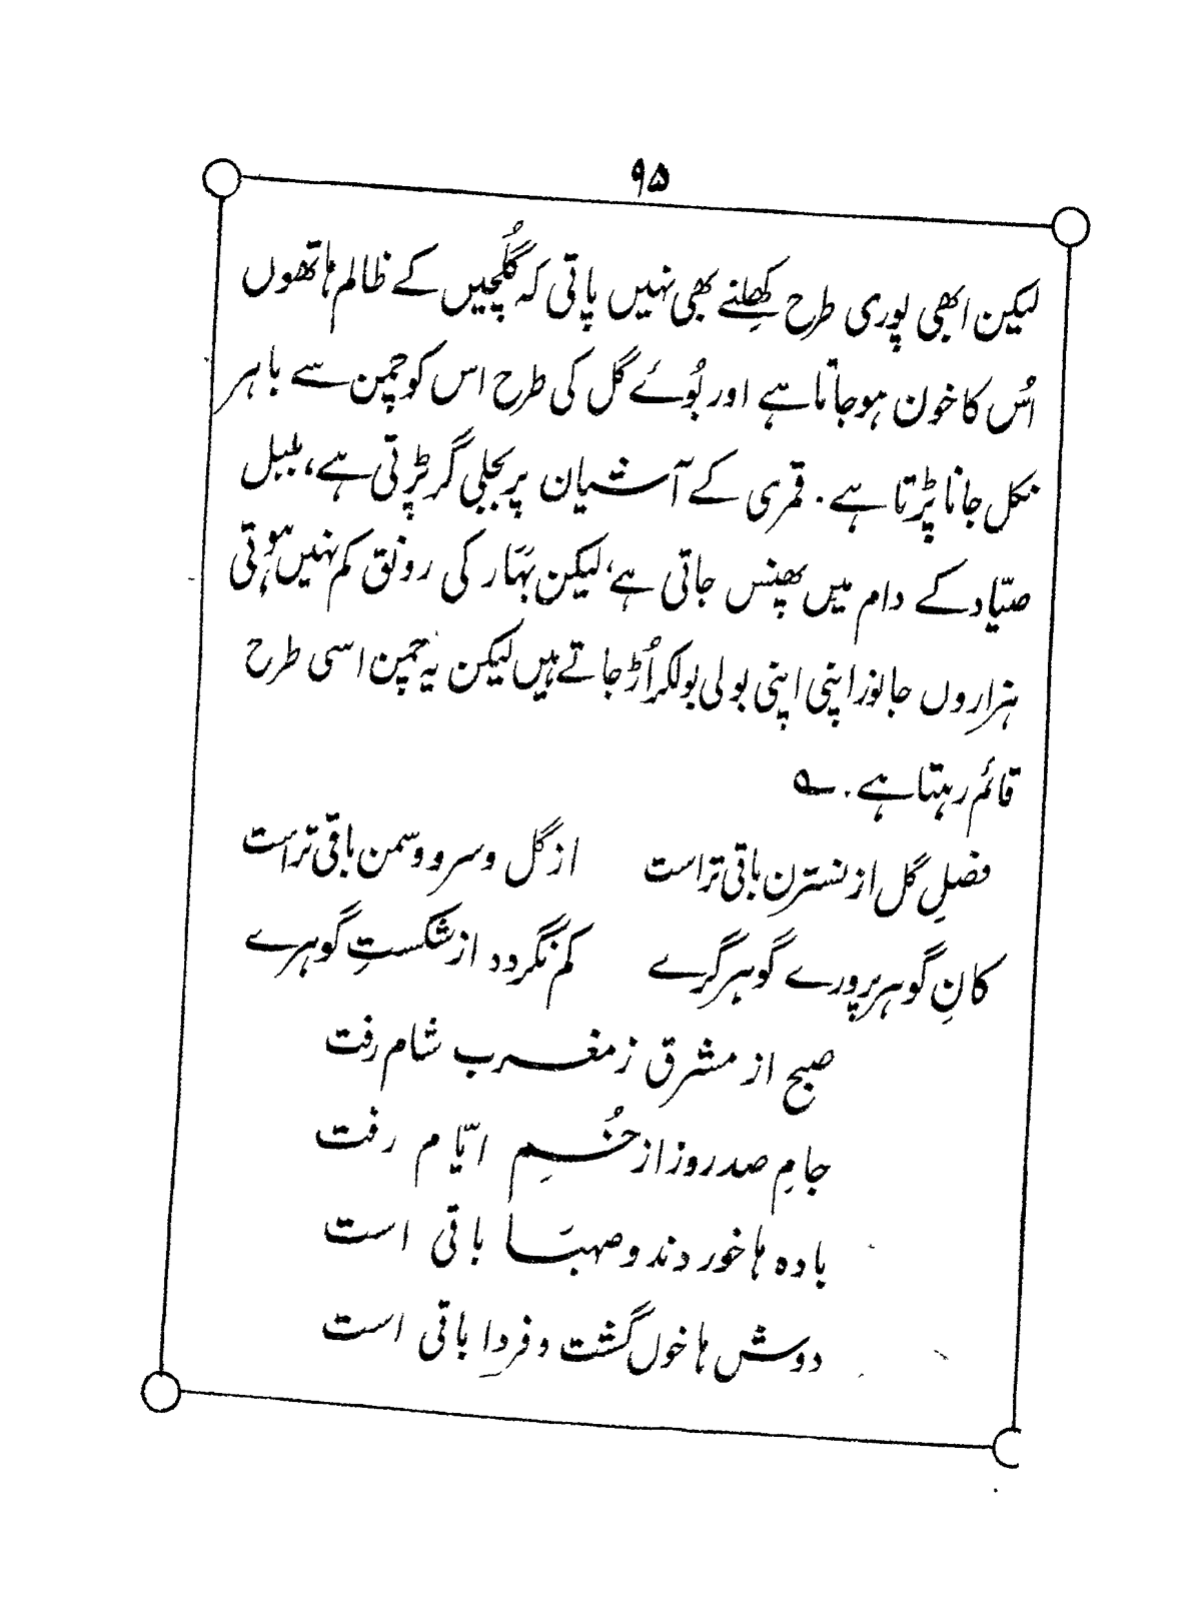 ۹۵
لیکن ابھی پوری طرح کھِلنے بھی نہیں پاتی کہ گُلچیں کے ظالم ہاتھوں
اُس کا خون ہوجاتا ہے اور بُوئے گل کی طرح اس کو چمن سے باہر
نکل جانا پڑتا ہے۔ قمری کے آشیان پر بجلی گر پڑتی ہے، بلبل
صیّاد کے دام میں پھنس جاتی ہے، لیکن بہَار کی رونق کم نہیں ہوتی
ہزاروں جانور اپنی اپنی بولی بولکر اُڑ جاتے ہیں لیکن یہ چمن اسی طرح
قائم رہتا ہے۔ ؎
فصلِ گل از نسترن باقی تر است از گل و سرو و سمن باقی تر است
کانِ گوہر پرورے گوہر گرے کم نگردد از شکستِ گوہرے
صبح از مشرق ز مغرب شام رفت
جامِ صد روز از خُمِ ایّام رفت
بادہ ہا خوردند و صہبَا باقی است
دوش ہا خوں گشت و فردا باقی است